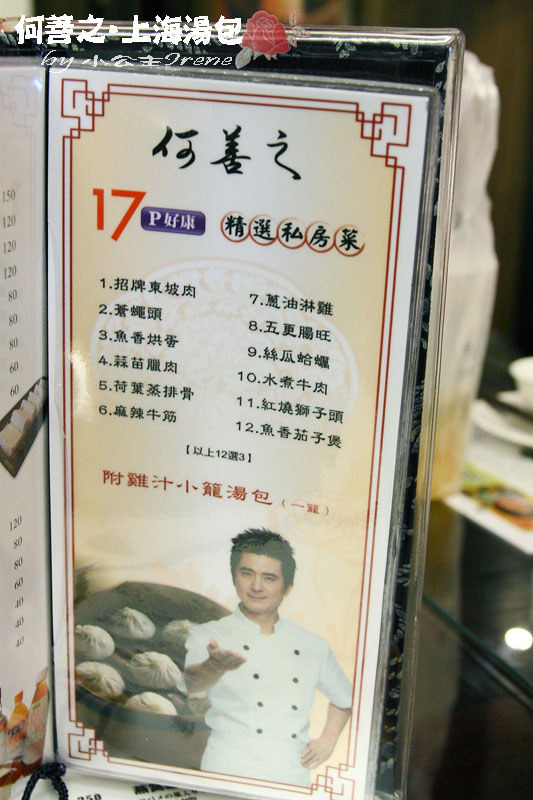 何善之·上海湯包
by 小公主Irene
何善之
17P好康 精選私房菜
1.招牌東坡肉
2.蒼蠅頭
3.魚香烘蛋
4.蒜苗臘肉
5.荷葉蒸排骨
6.麻辣牛筋
7.蔥油淋雞
8.五更腸旺
9.絲瓜蛤蠣
10.水煮牛肉
11.紅燒獅子頭
12.魚香茄子煲
【以上12選3】
附雞汁小籠湯包(一籠)
150
120
120
120
80
80
60
60
120
80
80
60
40
40